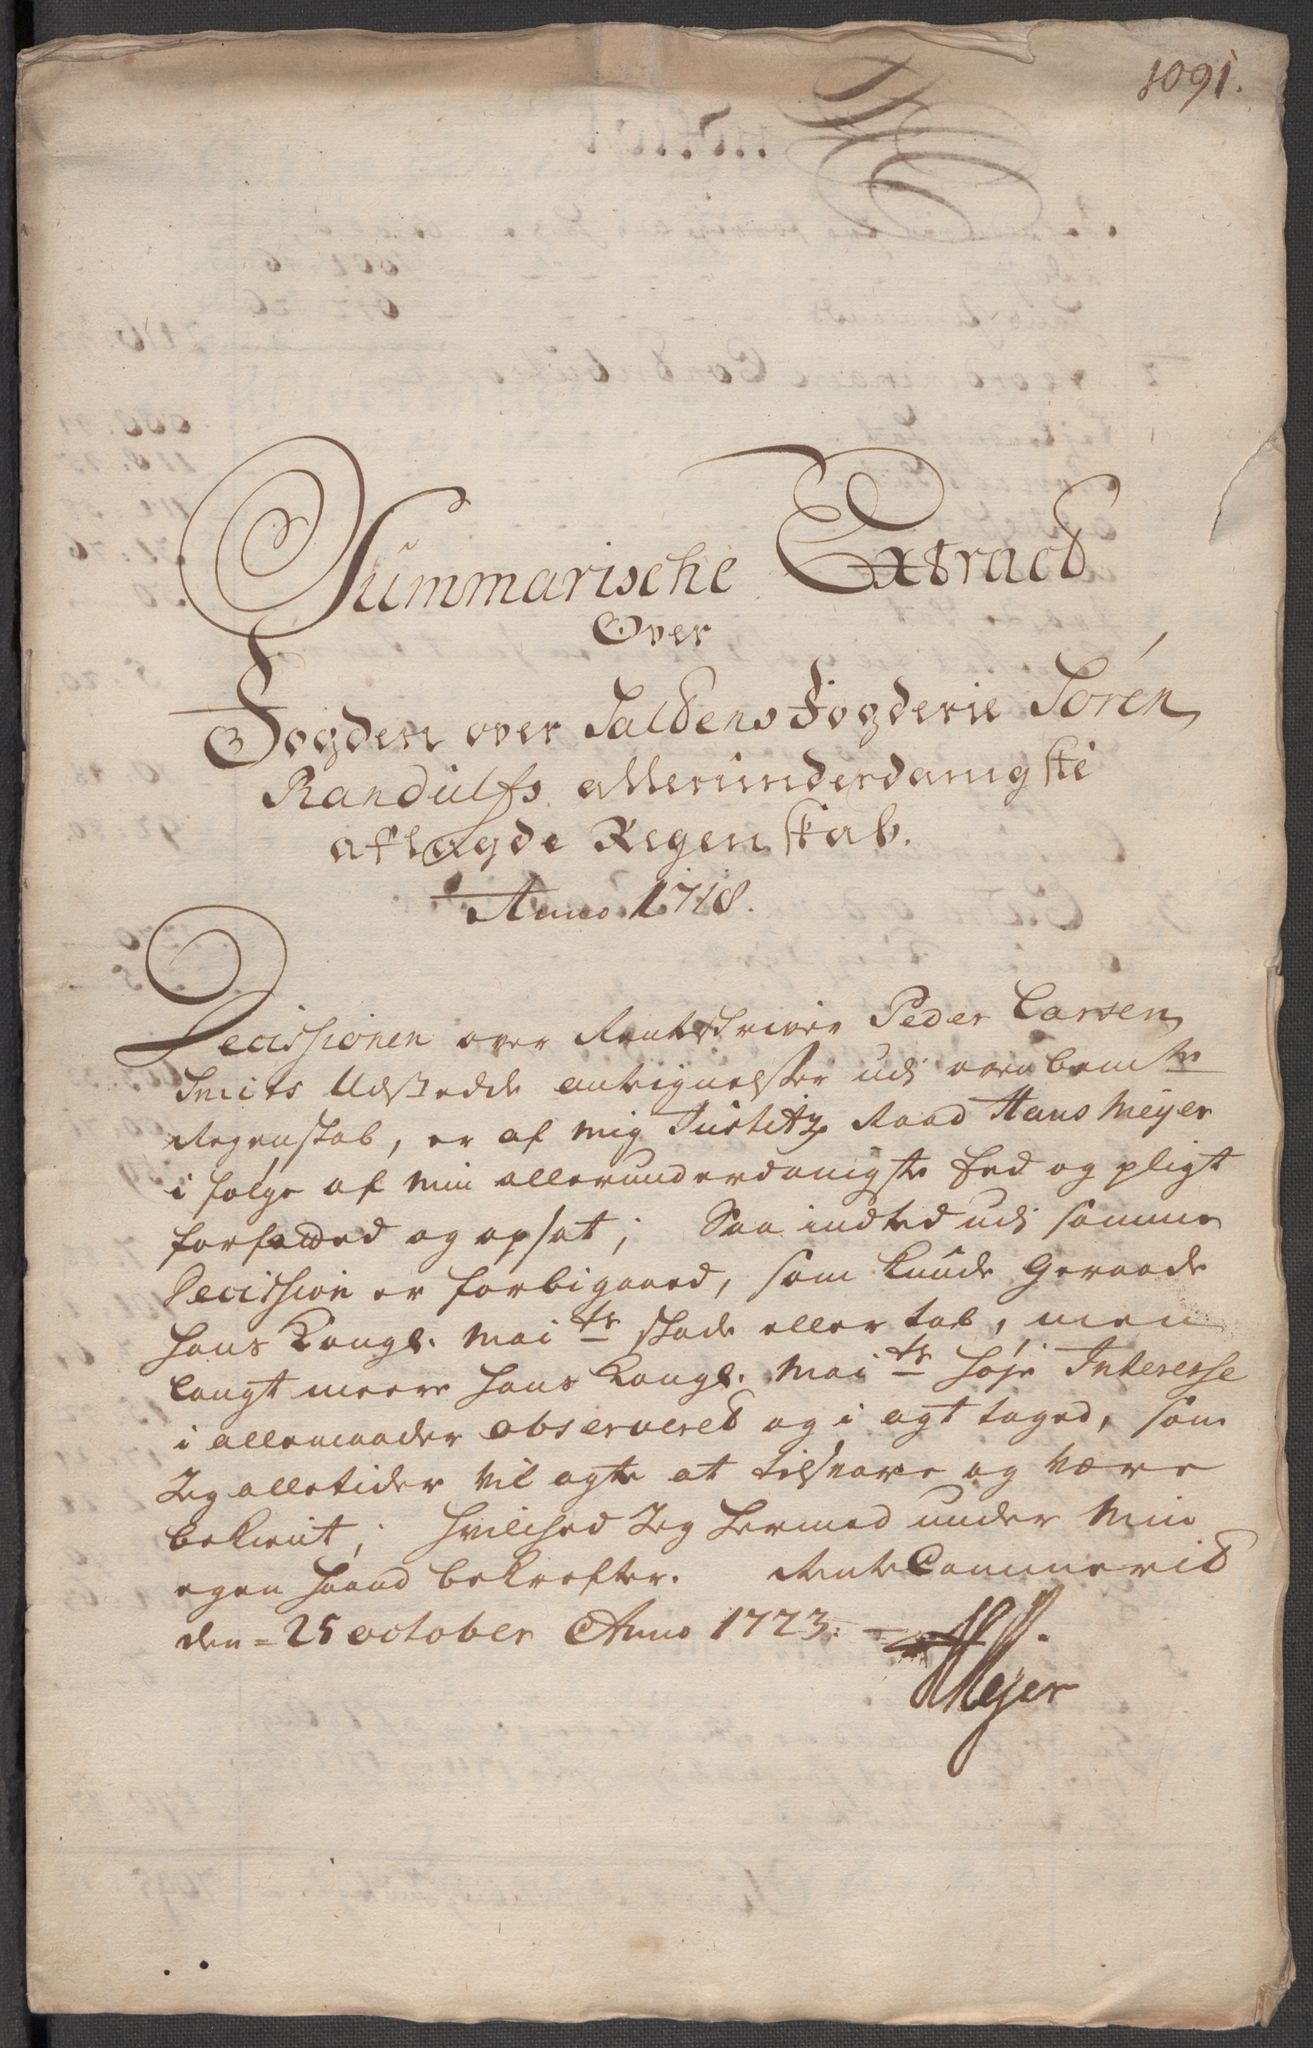 1091.
Summarische Extract
Over
Fogden over Saltens Fogderie Sören
Randulfs allerunderdanigste
aflagde Regenskab.
Anno 1718.
Decissionen over Renteschriver Peder Larsen
Smits Udstedde antegnelser udi ovenbemte
Regenskab, er af mig Justitz Raad Hans Meyer
i følge af min allerunderdanigste Eed og pligt
forfatted og opsat; Saa indted udi samme
Decission er forbigaaed, som kunde Geraade
hans Kongl. Maits skade eller tab, men
langt meere hans Kongl. Maits høje Interesse
i allemaader observered og i agt taged, som
Jeg alletider vil agte at tilsvare og være
bekient; hvilched Jeg hermed under Min
egen haand bekrefter. RenteCammerit
den = 25 october Anno 1723.
HMejer